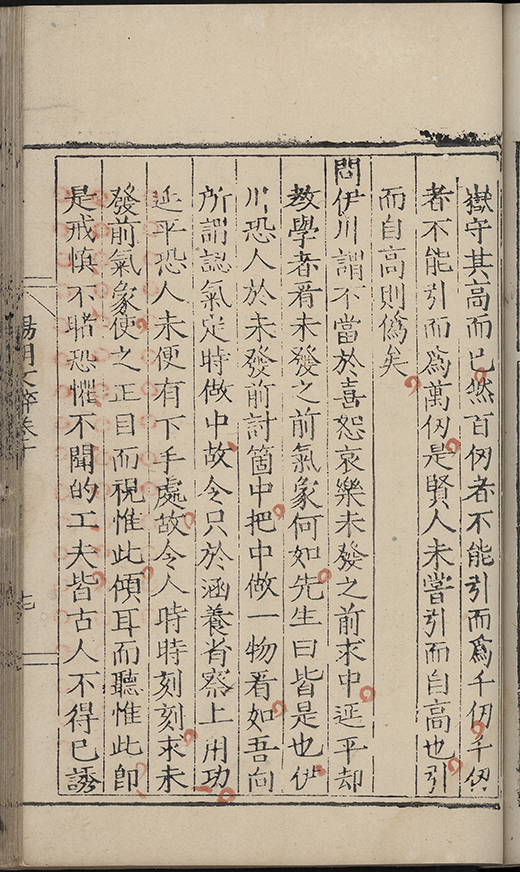 嶽守其高而已然百仞者不能引而爲千仞千仞
者不能引而爲萬仞是賢人未嘗引而自高也引
而自高則僞矣
問伊川謂不當於喜怒哀樂未發之前求中延平却
教學者看未發之前氣象何如先生曰皆是也伊
川恐人於未發前討箇中把中做一物看如吾向
所謂認氣定時做中故令只於涵養省察上用功
延平恐人未便有下手處故令人時時刻刻求未
發前氣象使之正目而視惟此傾耳而聽惟此卽
是戒慎不睹恐懼不聞的工夫皆古人不得已誘
陽明文粹卷十